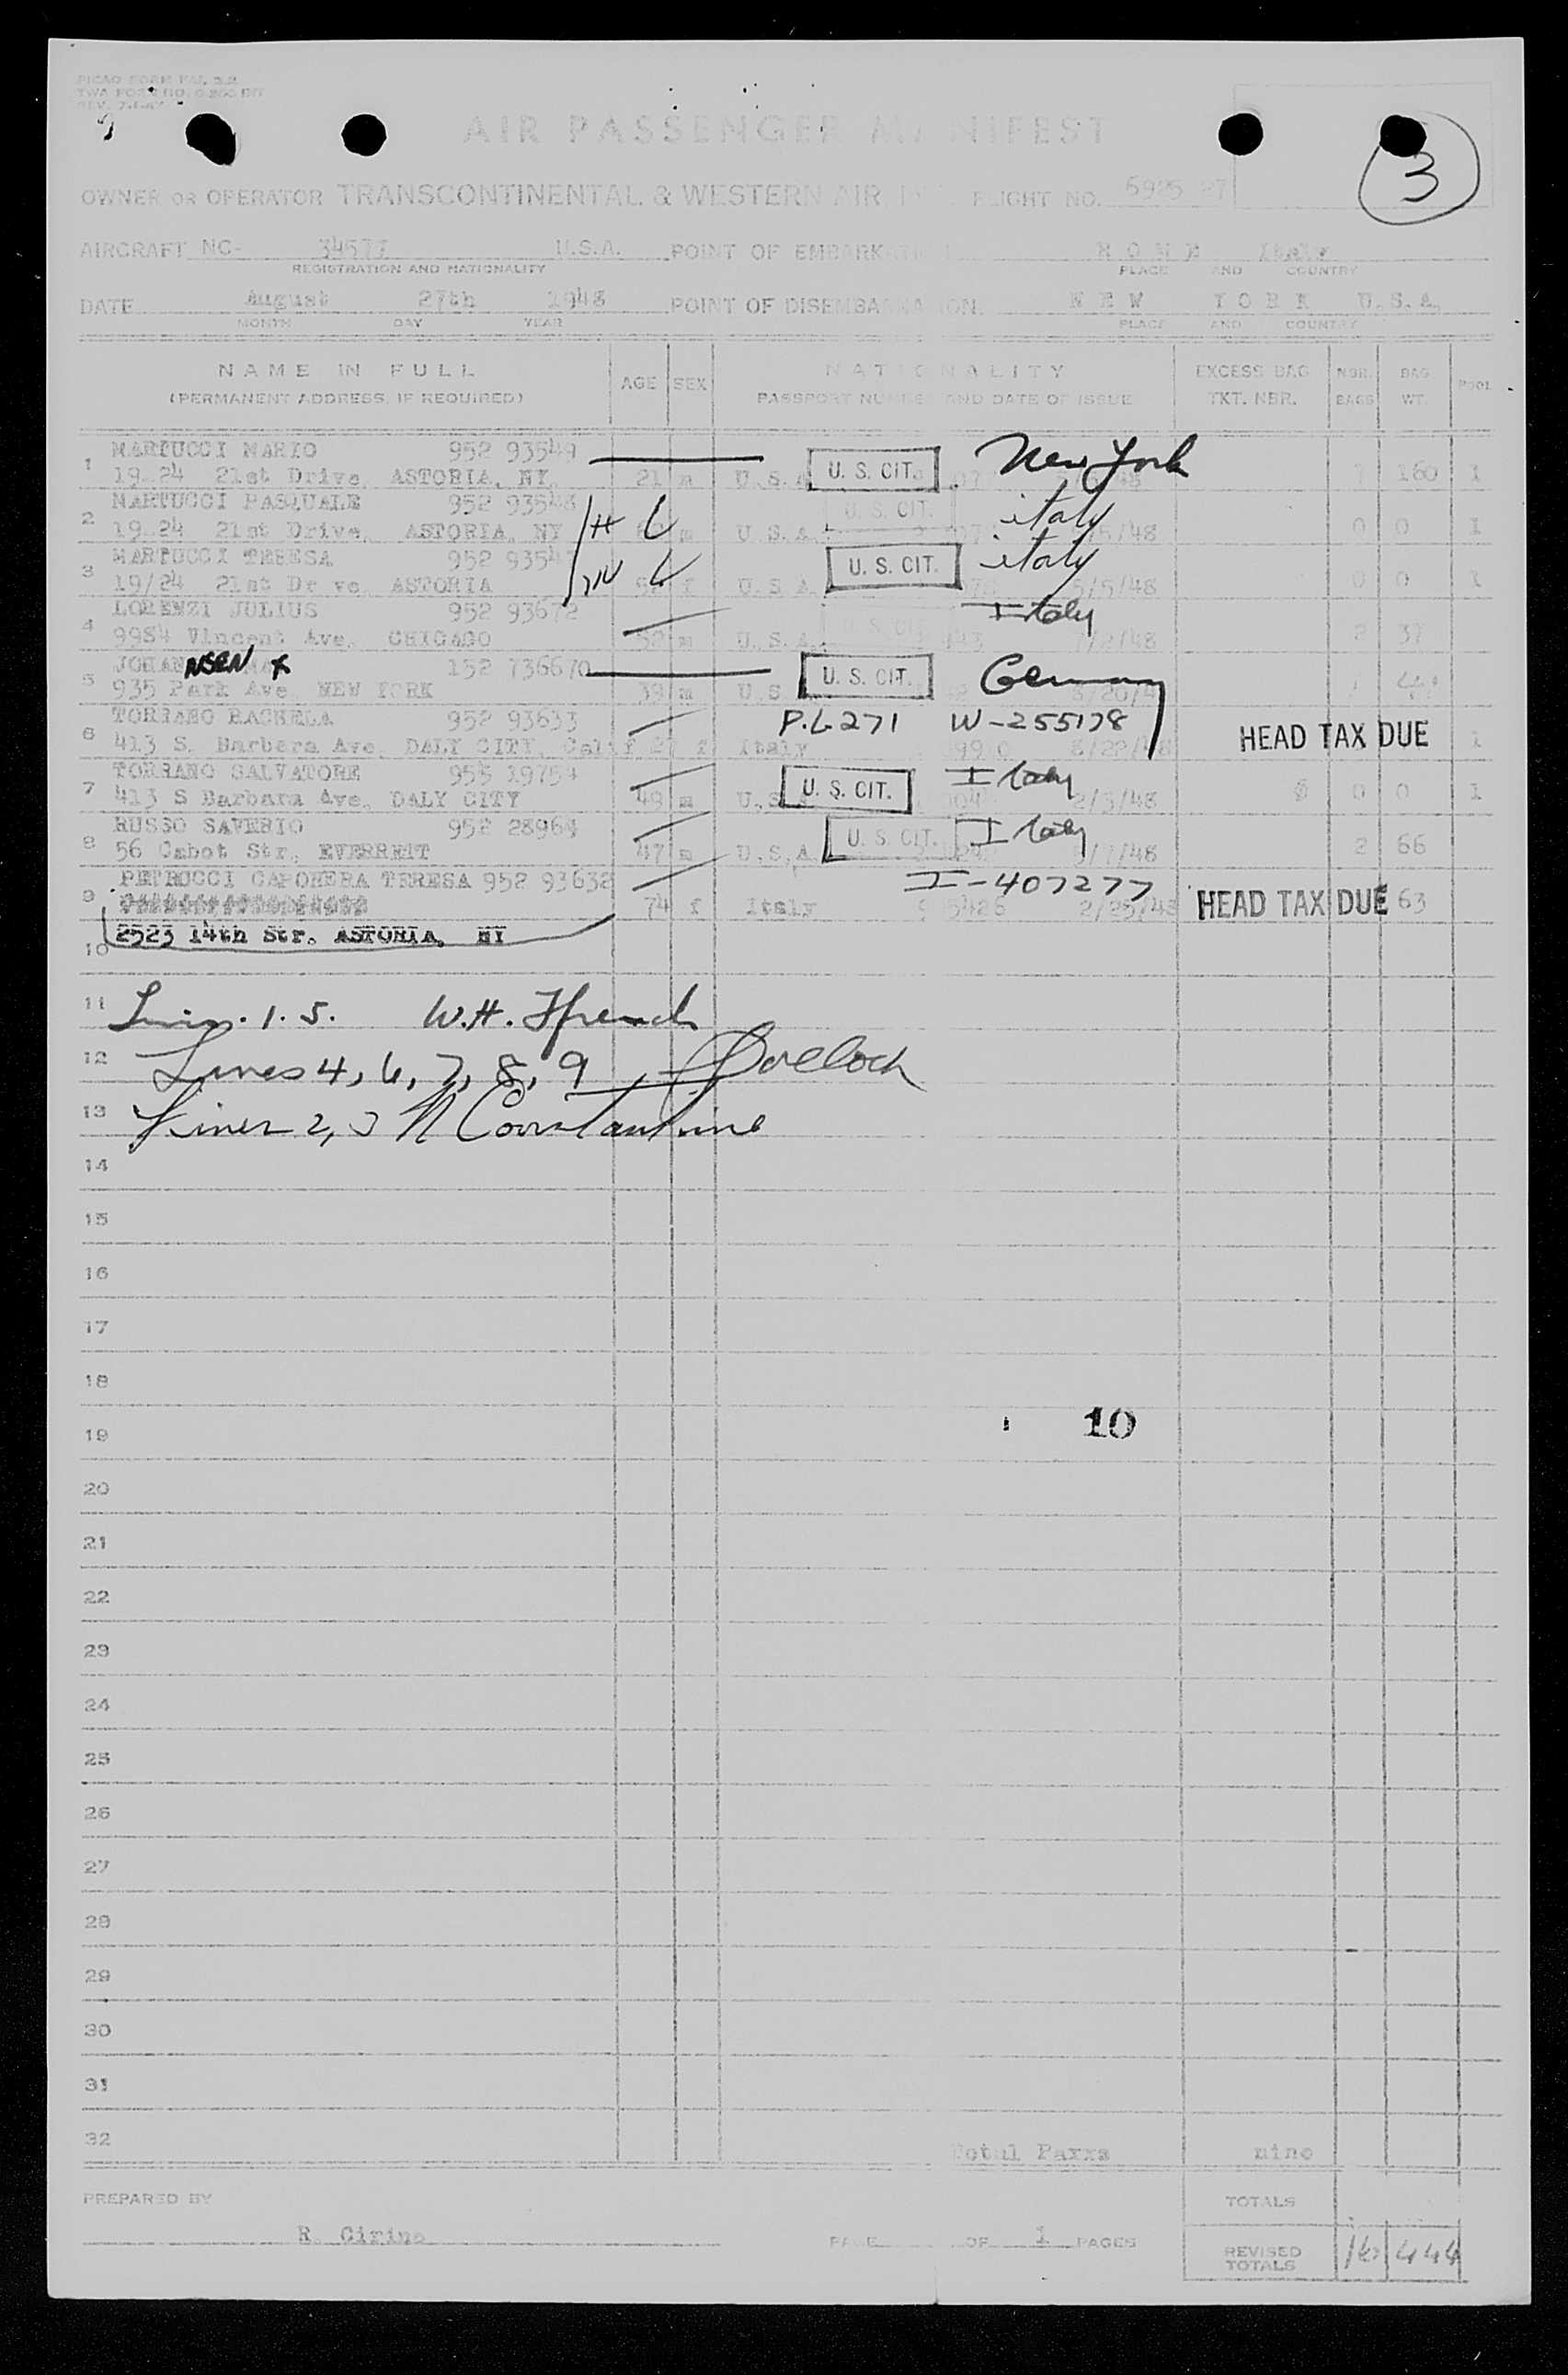 PICAO FORM
TWA FORM NO.
AIR PASSENGER MANIFEST
3
OWNER OR OPERATOR TRANSCONTINENTAL & WESTERN AIR, FLIGHT NO. 6925 27
AIRCRAFT NC- 34577 U.S.A. POINT OF EMBARKATION R O M E Italy
REGISTRATION AND NATIONALITY PLACE AND COUNTRY
DATE August 27th 1948 POINT OF DISEMBARKATION N E W Y O R K U.S.A.
MONTH DAY YEAR PLACE AND COUNTRY
NAME IN FULL AGE SEX NATIONALITY EXCESS BAG NBR. BAG POOL
(PERMANENT ADDRESS, IF REQUIRED) PASSPORT NUMBER AND DATE OF ISSUE TKT. NBR. BAGS WT.
1 MARTUCCI MARIO 952 93549 U. S. CIT. New York
19-24 21st Drive, ASTORIA, NY. 21 m U.S.A. 160 1
2 MARTUCCI PASQUALE 952 93548 H U. S. CIT. italy
19-24 21st Drive, ASTORIA, NY m U.S.A. /5/48 0 0 1
3 MARTUCCI TERESA 952 9354 W U. S. CIT. italy
19/24 21st Dr ve ASTORIA f U.S.A. 5/5/48 0 0 1
4 LORENZI JULIUS 952 93672 Italy
9954 Vincent Ave. CHICAGO 52 m U.S.A. U. S. CIT. /2/48 2 37
5 JOHANNSEN 152 736670 U. S. CIT. Germany
935 Park Ave. NEW YORK 39 m U.S. 8/20/4
6 TORRANO RACHELA 952 93633 P.L 271 W-255178
413 S. Barbara Ave. DALY CITY, Calif 27 f Italy 8/22/48 HEAD TAX DUE 1
7 TORRANO SALVATORE 955 19754 U. S. CIT. Italy
413 S Barbara Ave. DALY CITY 49 m U.S. 2/3/48 0 0 1
8 RUSSO SAVERIO 952 28964 U. S. CIT. Italy
56 Cabot Str. EVERRETT 47 m U.S.A 5/7/48 2 66
9 PETRUCCI CAPONERA TERESA 952 93632 I-407277
74 f Italy 2/25/48 HEAD TAX DUE 63
10 2523 14th Str. ASTORIA, NY
11 Lines. 1. 5. W.H. Ffrench
12 Lines 4, 6, 7, 8, 9
13 Lines 2, 3 N Constantine
14
15
16
17
18
19 10
20
21
22
23
24
25
26
27
28
29
30
31
32 Total Paxxs nine
PREPARED BY TOTALS
R. Cirino PAGE OF 1 PAGES REVISED TOTALS 16 444